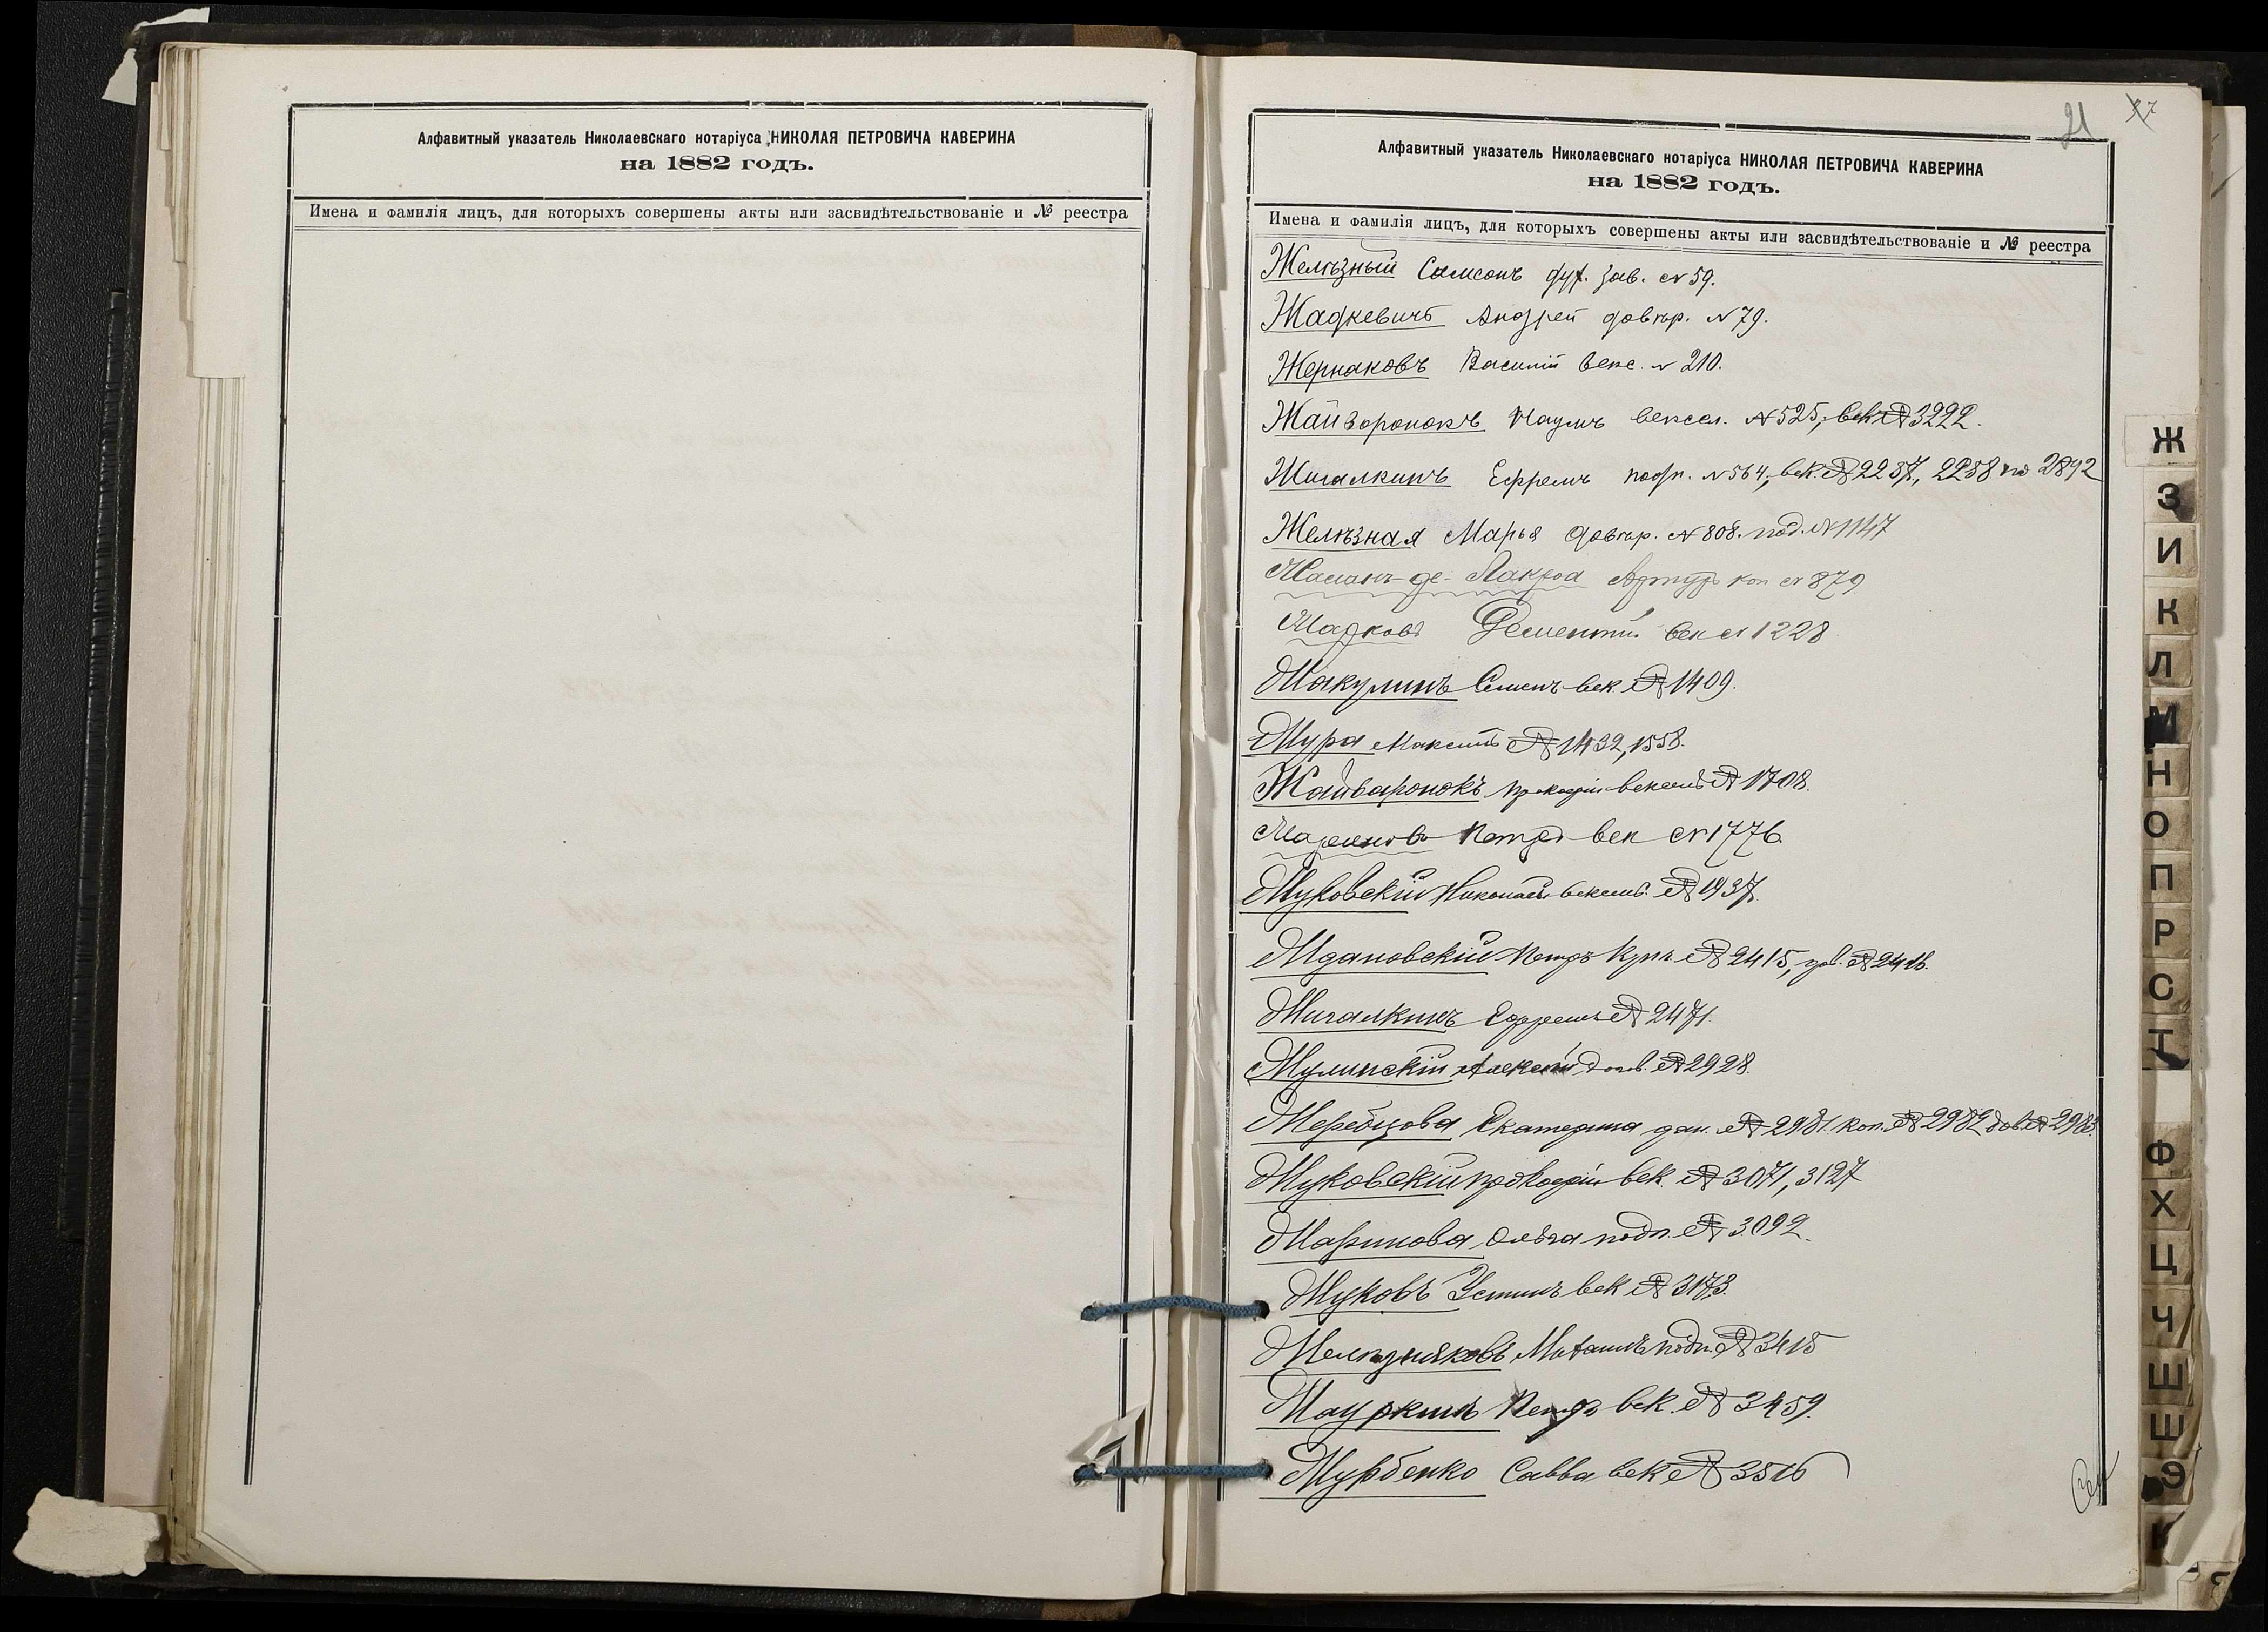 Алфавитный указатель Николаевскаго нотаріуса НИКОЛАЯ ПЕТРОВИЧА КАВЕРИНА
на 1882 годъ.
Имена и фамилія лицъ, для которыхъ совершены акты или засвидѣтельствованіе и № реестра
21
Алфавитный указатель Николаевскаго нотаріуса НИКОЛАЯ ПЕТРОВИЧА КАВЕРИНА
на 1882 годъ.
Имена и фамилія лицъ, для которыхъ совершены акты или засвидѣтельствованіе и № реестра
Желѣзный Самсонъ дух. зав. № 59.
Жадкевичъ Андрей довѣр. № 79.
Жернаковъ Василій векс. № 210.
Жайворонокъ Наумъ вексел. № 525, век № 3222.
Жигалкинъ Ефремъ подп. № 564, век. № 2257, 2258 по 2892
Желѣзная Марья довѣр. № 808. под. № 1147
Жаманъ-де-Лакроа Артуръ коп № 879
Жадковъ Дементій век № 1228
Жакулинъ Семенъ век № 1409.
Жура Максимъ № 1432, 1558.
Жайваронокъ Прокофій вексель № 1708.
Петръ век № 1776
Жуковскій Николай вексель № 1937.
Ждановскій Петръ Купч. № 2415, дов. № 2416.
Жигалкинъ Ефремъ № 2471.
Жулинскій Алексѣй дов. № 2928.
Жеребцова Екатерина дан. № 2981. коп. № 2982 дов. № 2983.
Жуковскій Прокофій век. № 3071, 3127
Жаринова Ольга подп. № 3092.
Жуковъ Устинъ век № 3173.
Желѣзняковъ подп. № 3415
Жауркинъ Петръ век. № 3459.
Журбенко Савва век № 3516
Ж
З
И
К
Л
М
Н
О
П
Р
С
Т
Ф
Х
Ц
Ч
Ш
Щ
Э